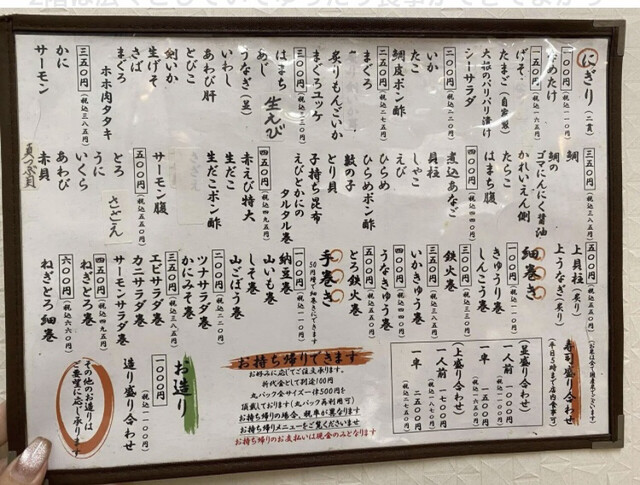 にぎり（二貫）
一〇〇円（税込一一〇円）
なめたけ
一五〇円（税込一六五円）
げそ
たまご（自家製）
大根のパリパリ漬け
シーサラダ
二〇〇円（税込二二〇円）
いか
たこ
鯛皮ポン酢
二五〇円（税込二七五円）
炙りもんごいか
まぐろユッケ
三〇〇円（税込三三〇円）
はまち
生えび
あじ
うなぎ（並）
いわし
あわび肝
とびこ
剣いか
生げそ
さば
まぐろ
ホホ肉タタキ
三五〇円（税込三八五円）
かに
サーモン
三五〇円（税込三八五円）
鯛
鯛の
ゴマにんにく醤油
かれいえん側
たらこ
はまち腹
煮込あなご
貝柱
しゃこ
えび
ひらめ
ひらめポン酢
数の子
とり貝
子持ち昆布
えびとかにの
タルタル巻
四五〇円（税込四九五円）
赤えび特大
生だこ
生だこポン酢
サーモン腹
五〇〇円（税込五五〇円）
とろ
さざえ
うに
いくら
あわび
赤貝
真つぶ貝
五〇〇円（税込五五〇円）
上貝柱（炙り）
上うなぎ（炙り）
細巻き
一〇〇円（税込一一〇円）
きゅうり巻
しんこう巻
三〇〇円（税込三三〇円）
鉄火巻
三五〇円（税込三八五円）
いかきゅう巻
四〇〇円（税込四四〇円）
うなきゅう巻
五〇〇円（税込五五〇円）
とろ鉄火巻
手巻き
50円増で細巻きにできます
一〇〇円（税込一一〇円）
納豆巻
山いも巻
しそ巻
山ごぼう巻
二〇〇円（税込二二〇円）
ツナサラダ巻
かにみそ巻
三五〇円（税込三八五円）
エビサラダ巻
カニサラダ巻
サーモンサラダ巻
四五〇円（税込四九五円）
ねぎとろ巻
六〇〇円（税込六六〇円）
ねぎとろ細巻
寿司盛り合わせ
（平日5時まで店内食事可）
（並盛り合わせ）
一人前 一〇〇〇円
（税込一一〇〇円）
一半 一五〇〇円
（税込一六五〇円）
（上盛り合わせ）
一人前 一七〇〇円
（税込一八七〇円）
一半 二五〇〇円
（税込二七五〇円）
お持ち帰りできます
お好みに応じてご注文承ります。
折代金として別途100円
丸パック全サイズ一律500円を
頂戴しております（丸パック再利用可）
お持ち帰りの場合、税率が異なります
お持ち帰りメニューをご覧くださいませ
お持ち帰りのお支払いは現金のみとなります
お造り
一〇〇〇円
（税込一一〇〇円）
造り盛り合わせ
その他のお造りは
ご要望に応じ承ります